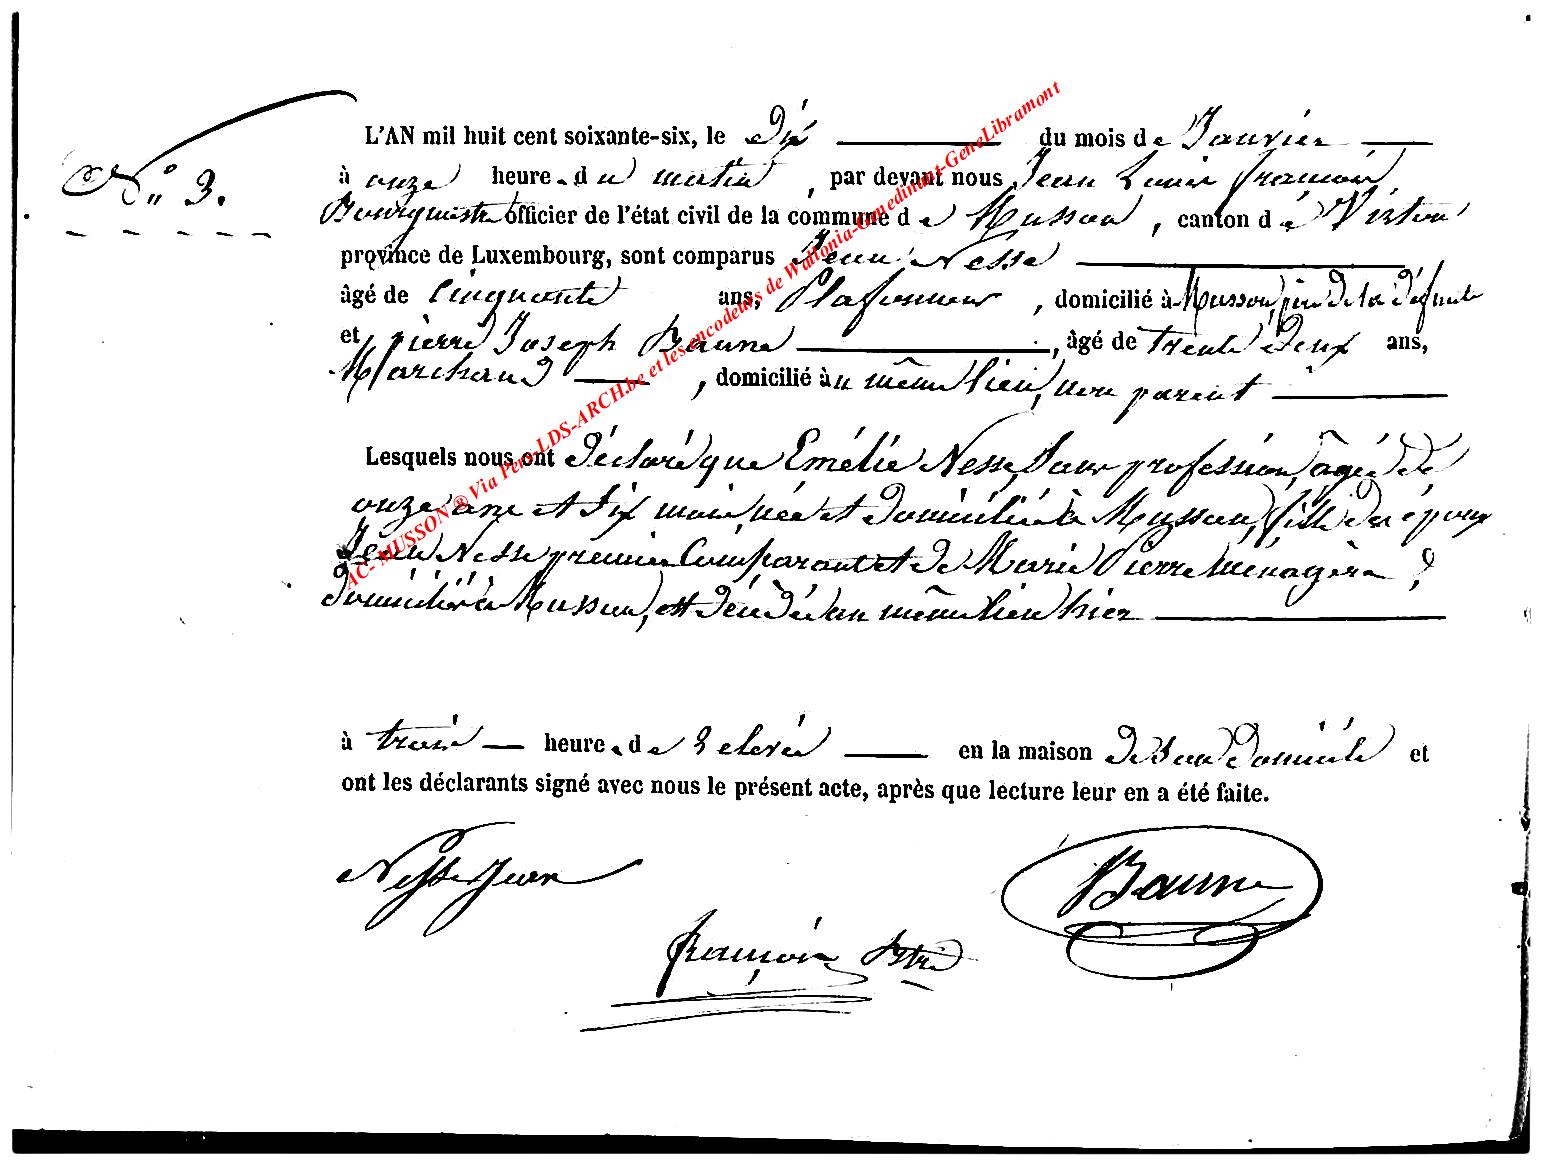 N° 3.
L'AN mil huit cent soixante-six, le dix du mois de Janvier
à onze heure. du matin, par devant nous Jean Louis françois
Bourgmestre officier de l'état civil de la commune de Musson, canton de Virton
province de Luxembourg, sont comparus Jean Nesse
âgé de Cinquante ans, Plafonneur, domicilié à Musson, père de la défunte
et pierre Joseph Baune, âgé de trente deux ans,
Marchand, domicilié au même lieu, non parent
Lesquels nous ont déclaré que Emélie Nesse, sans profession, âgée de
onze ans et six mois, née et domiciliée à Musson, fille des époux
Jean Nesse premier Comparant et de Marie Pierre ménagère,
domiciliés à Musson, est décédé au même lieu hier
à trois heure. de relevée en la maison de son domicile et
ont les déclarants signé avec nous le présent acte, après que lecture leur en a été faite.
Nesse Jean
Baune
françois Btre
AC- MUSSON ® Via Pers-LDS-ARCH.be et les encodeurs de Wallonia-Genedinant-GeneLibramont